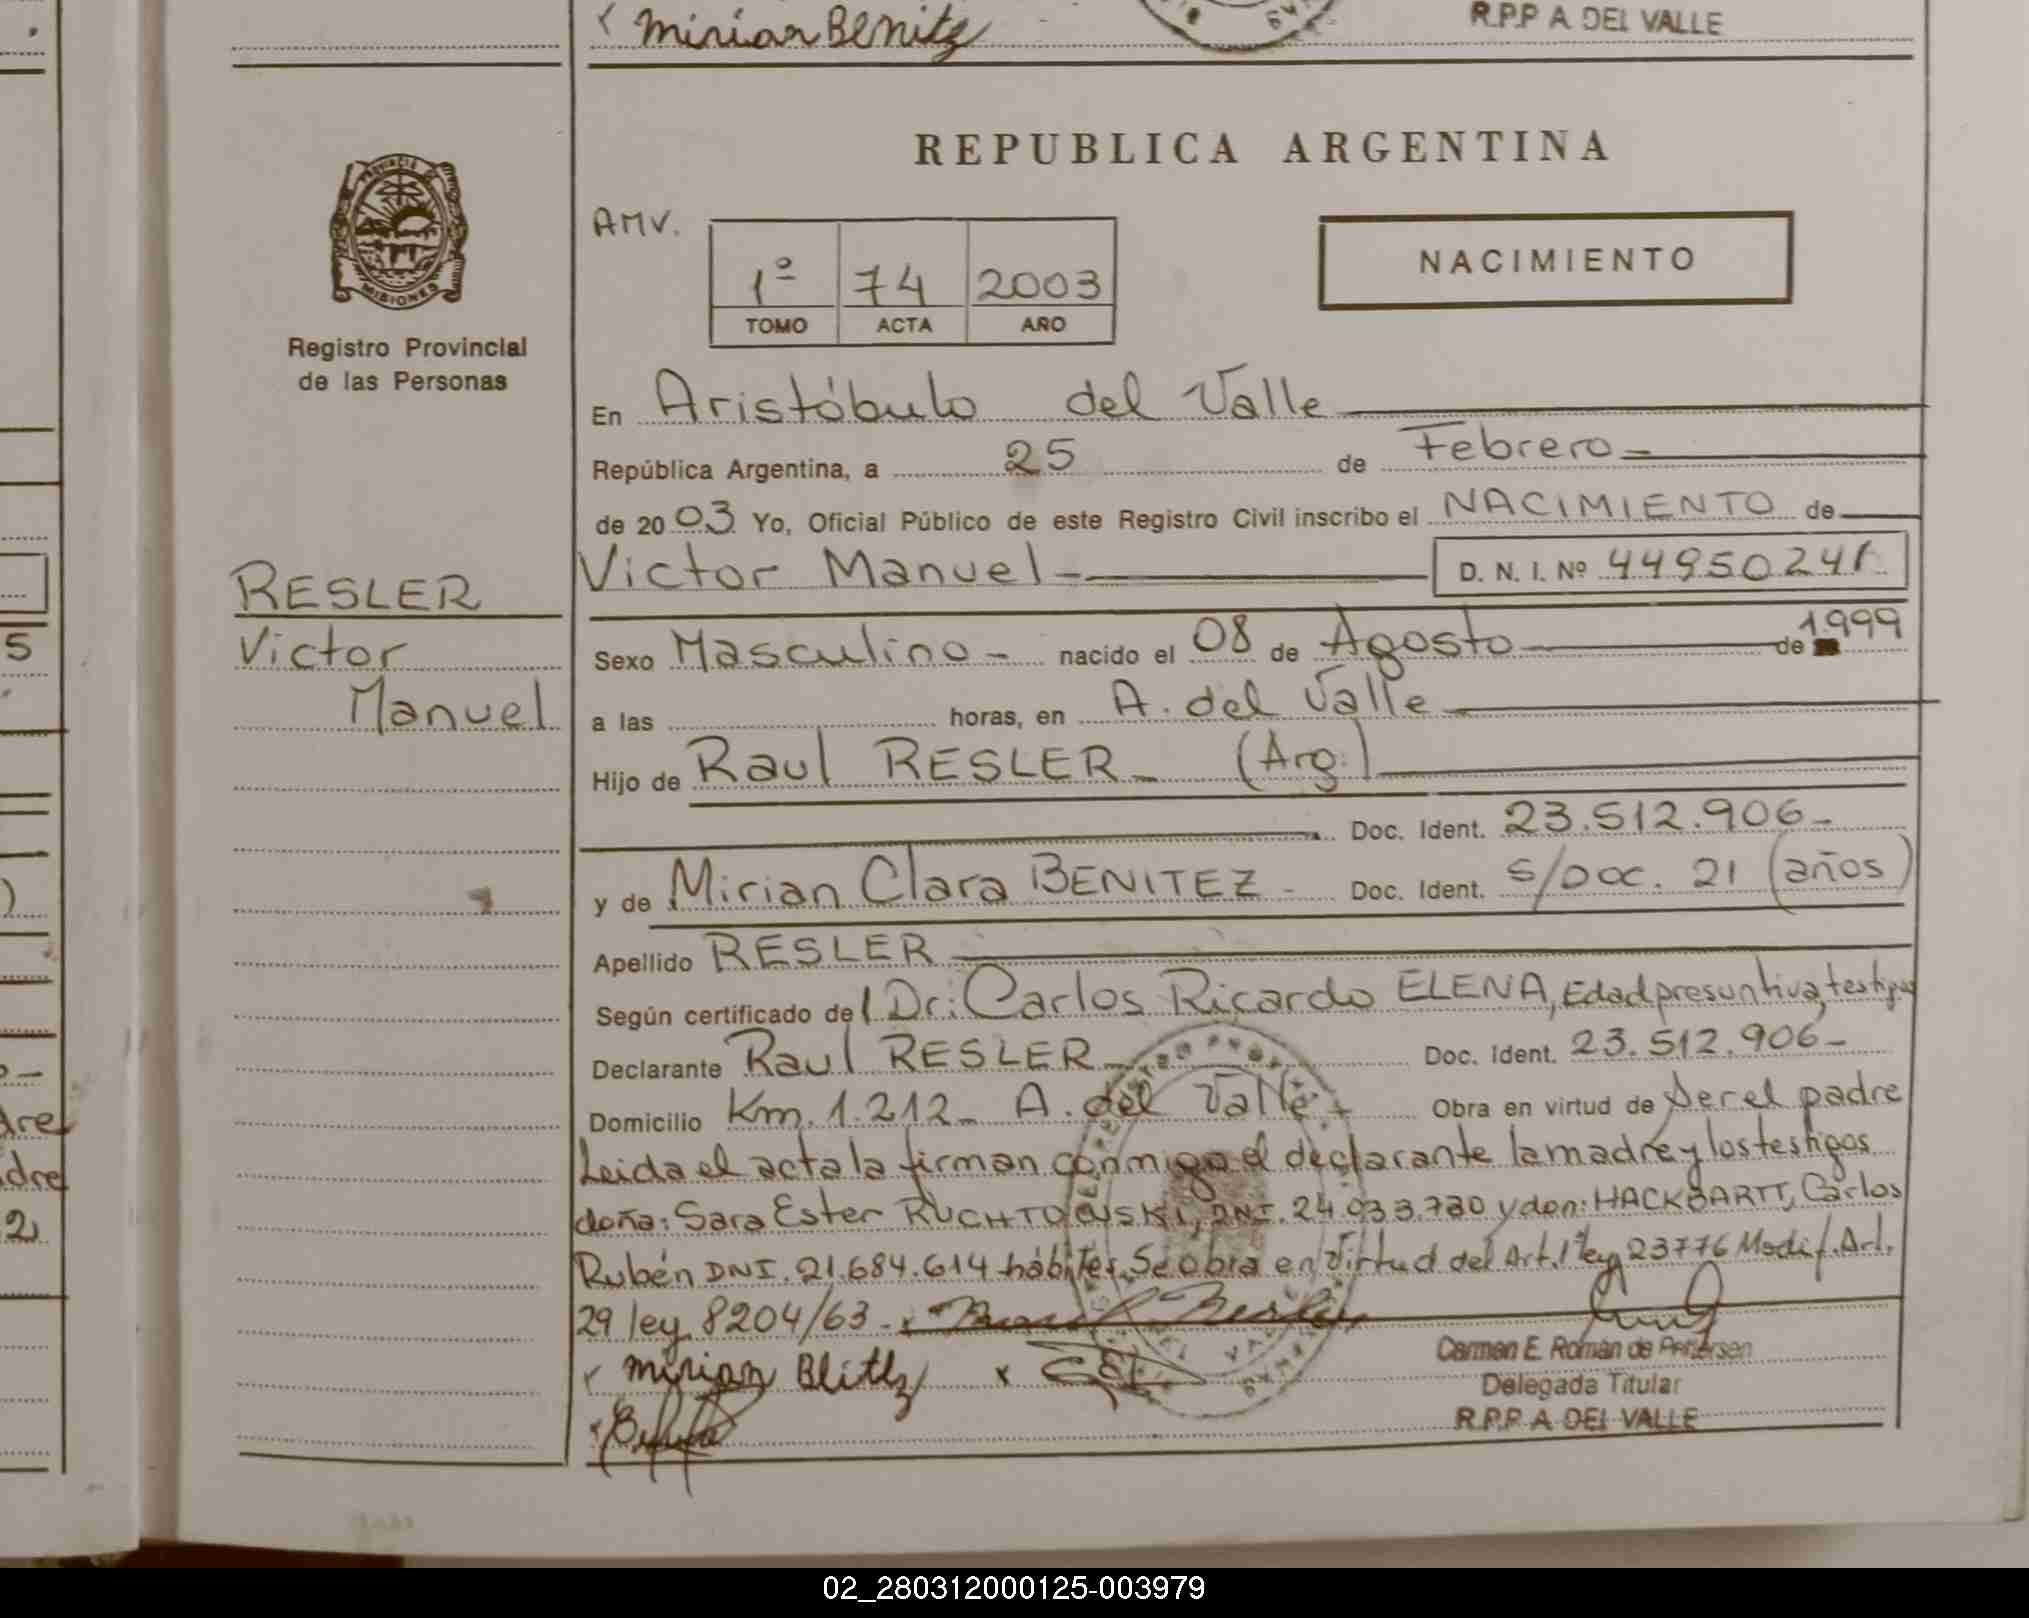 Mirian Benitz
R.P.P A DEL VALLE
REPUBLICA ARGENTINA
PROVINCIA DE MISIONES
Registro Provincial
de las Personas
AMV.
1º 74 2003
TOMO ACTA AÑO
NACIMIENTO
En Aristóbulo del Valle
República Argentina, a 25 de Febrero
de 2003 Yo, Oficial Público de este Registro Civil inscribo el NACIMIENTO de
Victor Manuel D. N. I. Nº 44950241
RESLER
Victor
Manuel
Sexo Masculino nacido el 08 de Agosto de 1.999
a las horas, en A. del Valle
Hijo de Raul RESLER (Arg.)
Doc. Ident. 23.512.906
y de Mirian Clara BENITEZ Doc. Ident. S/Doc. 21 (años)
Apellido RESLER
Según certificado del Dr: Carlos Ricardo ELENA, Edad presuntiva, testigos
Declarante Raul RESLER Doc. Ident. 23.512.906
Domicilio Km. 1.212 A. del Valle Obra en virtud de ser el padre
Leida el acta la firman conmigo el declarante la madre y los testigos
doña: Sara Ester DNI. 24.933.730 y don: HACKBARTT, Carlos
Rubén DNI. 21.684.614 hábiles. Se obra en virtud del Art. 1º ley 23776 Modif. Art.
29 ley 8204/63
Mirian Blitz
Carmen E. Román de Petersen
Delegada Titular
R.P.P. A DEL VALLE
02_280312000125-003979